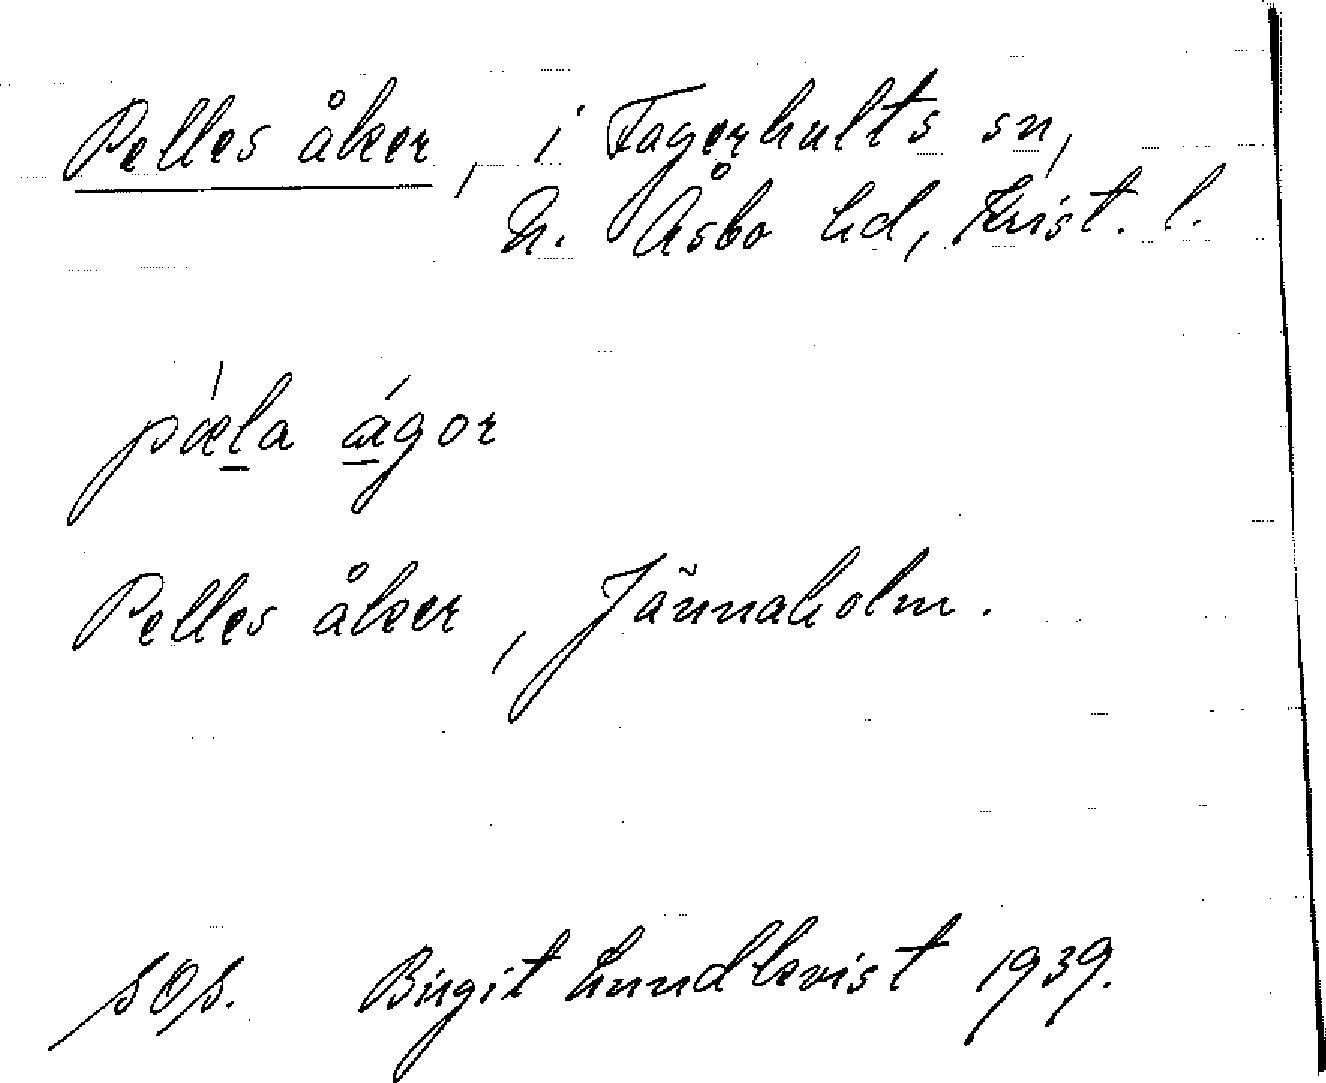 Pelles åker, i Fagerhults sn,
N. Åsbo hd, Krist. l.
pæla ágor
Pelles åker, Jännaholm.
Birgit Lundkvist 1939.